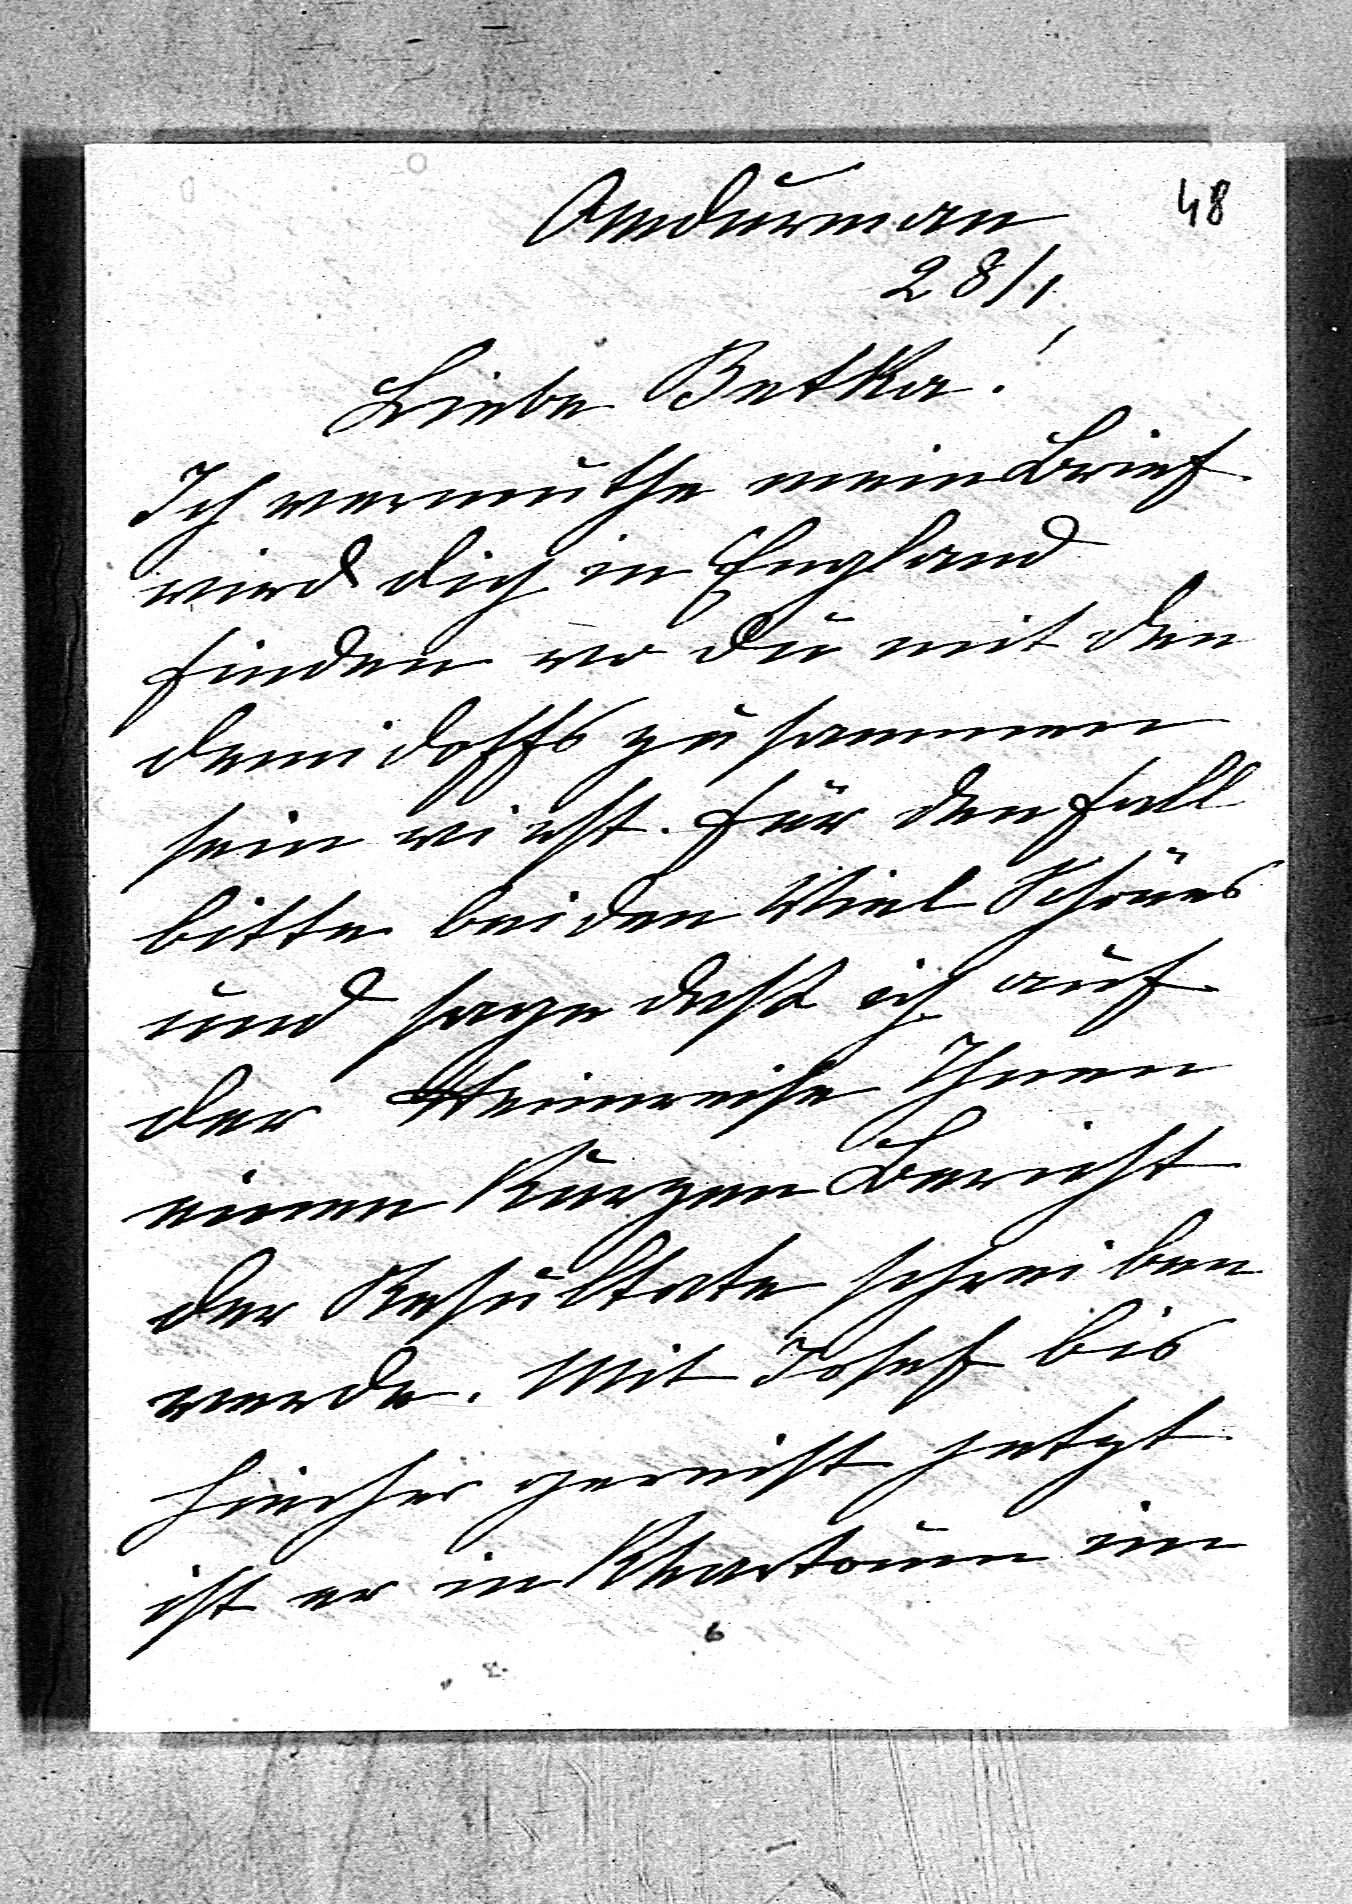 48
Omdurman
28/1.
Liebe Betka!
Ich vermuthe mein Brief
wird dich in England
finden wo du mit den
Demidoffs zusammen
sein wirst. Für den Fall
bitte beiden Viel Schönes
und sage daß ich auf
der Heimreise Ihnen
einen Kurzen Bericht
der Resultate schreiben
werde. Mit Josef bis
hierher gereist jetzt
ist er in Khartoum im